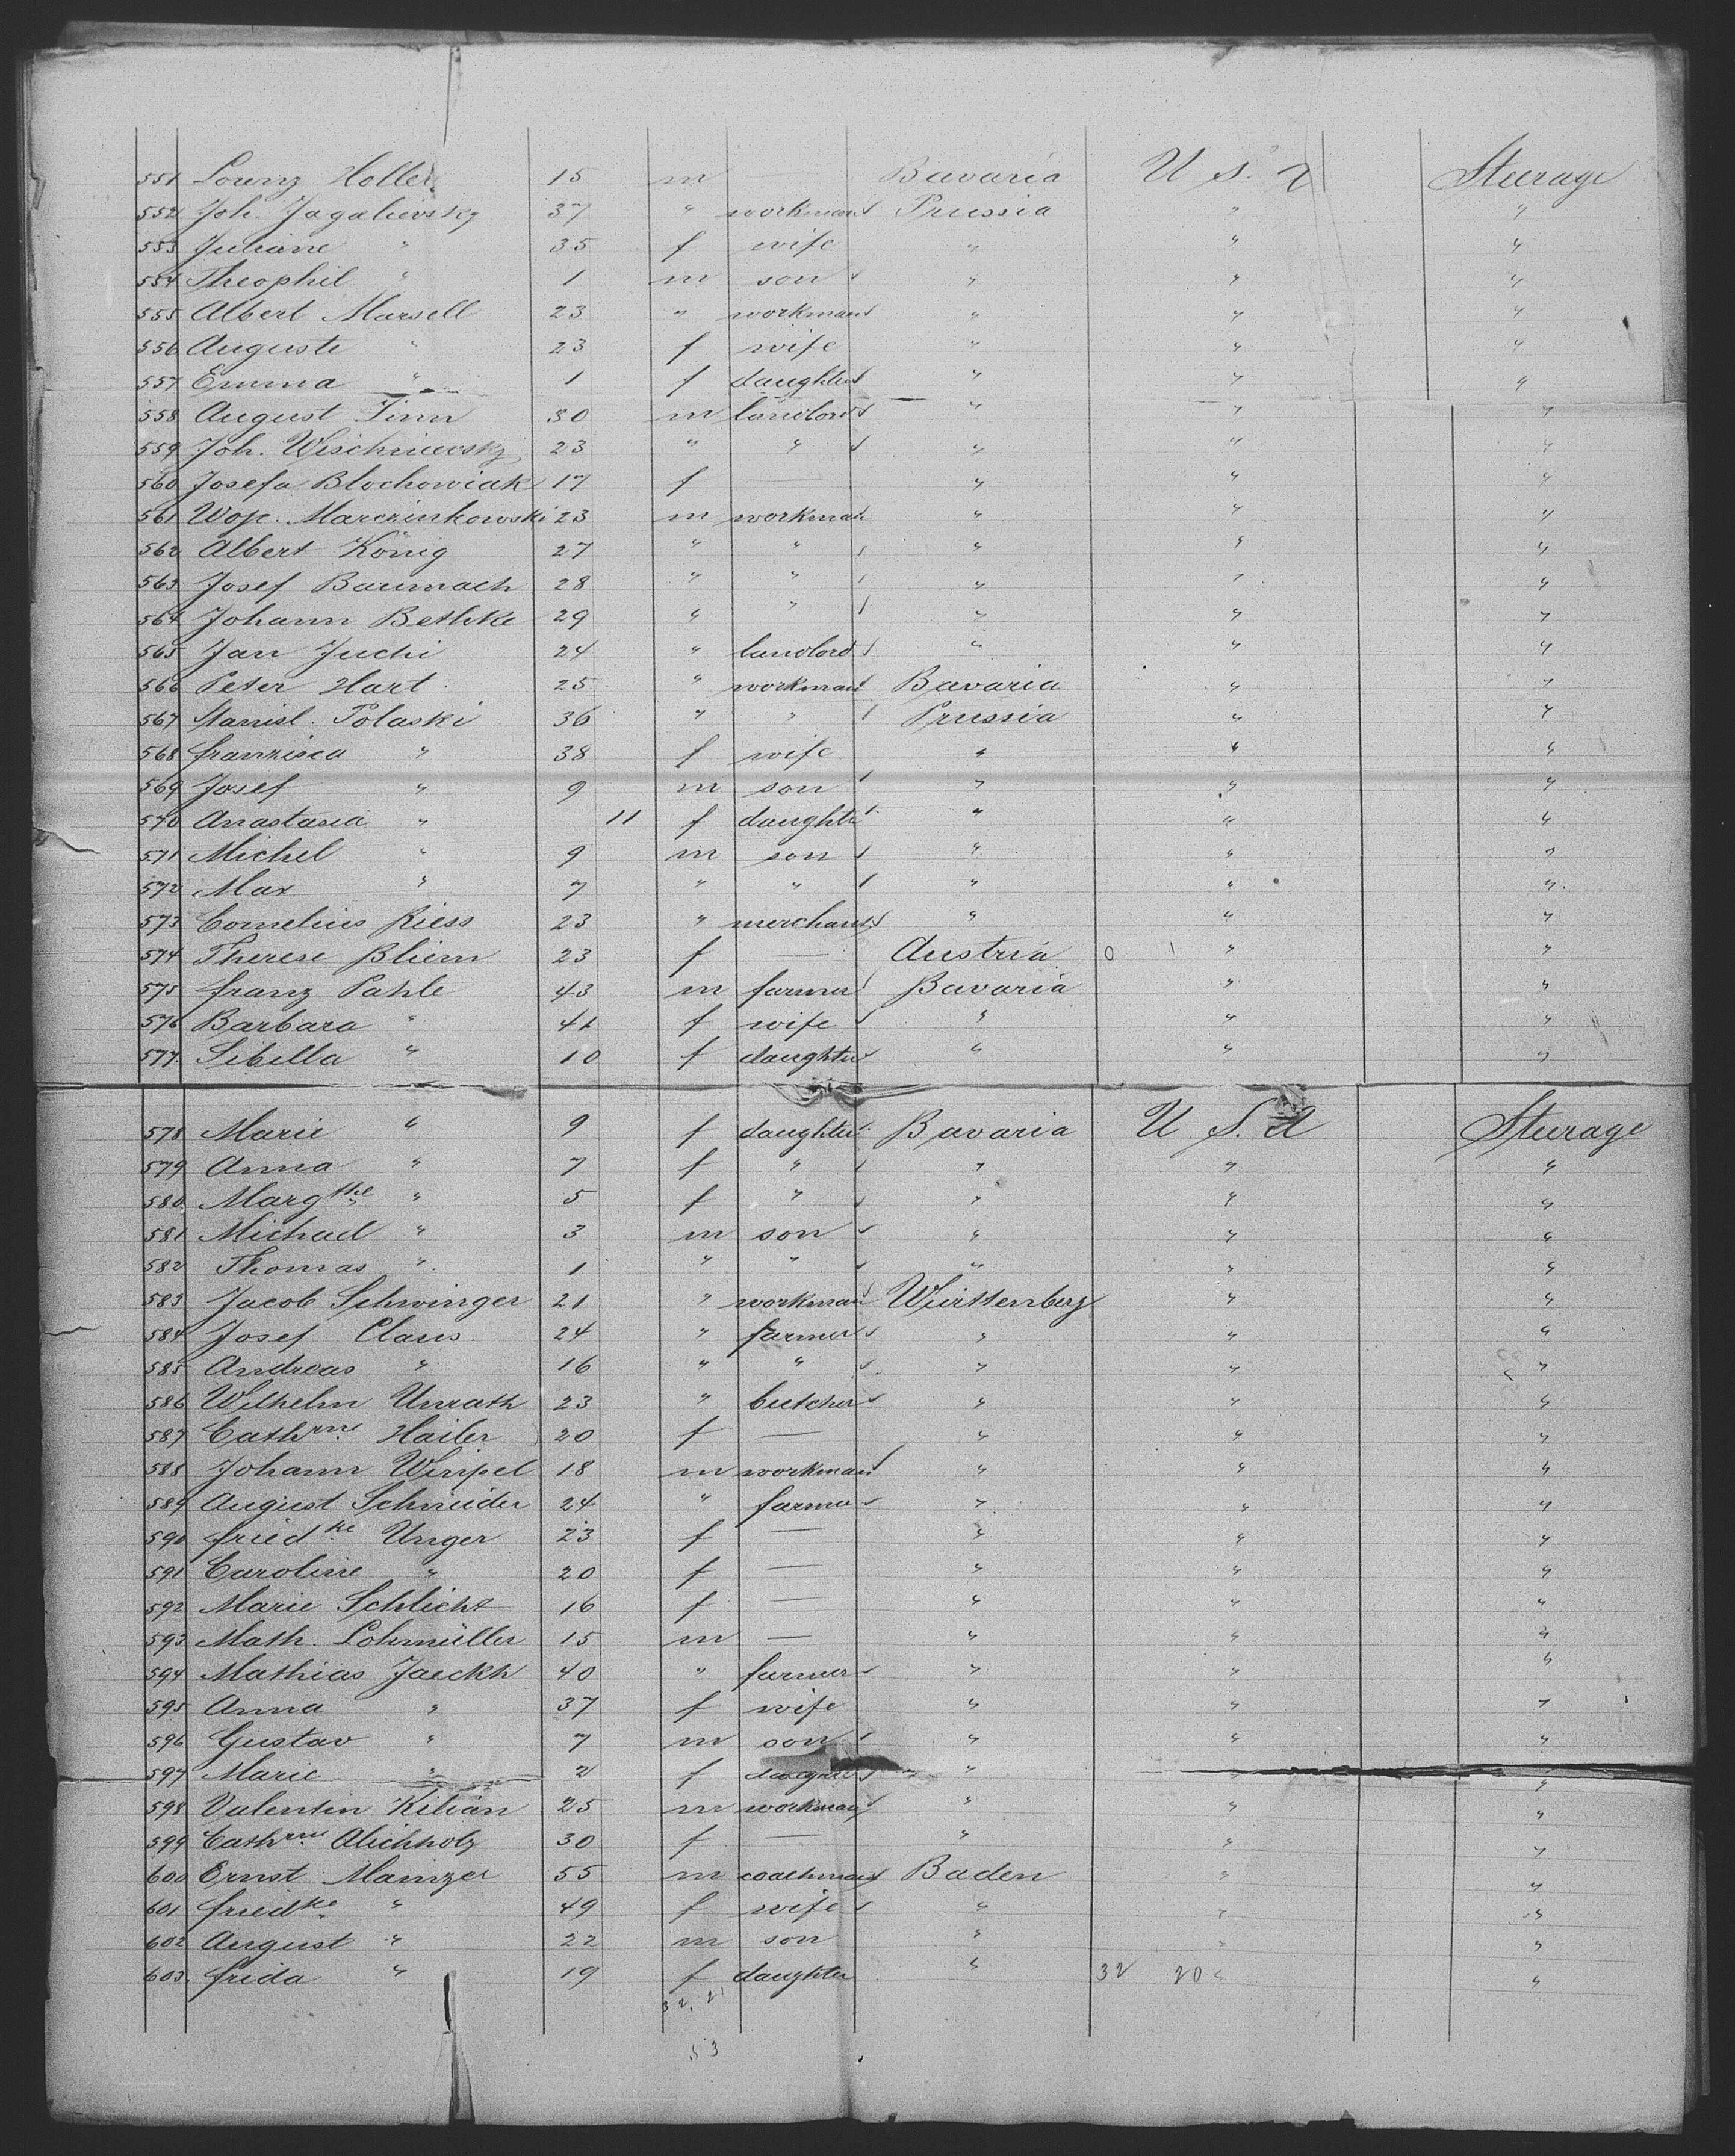 551 Lorenz Holler 15 m Bavaria U S. A Steerage
552 Joh. Jagalievsky 37 " workman Prussia " "
553 Juliane " 35 f wife " " "
554 Theophil " 1 m son " " "
555 Albert Marsell 23 " workman " " "
556 Auguste " 23 f wife " " "
557 Emma " 1 f daughter " " "
558 August Timm 30 m landlord " " "
559 Joh. Wischniewsky 23 " " " " "
560 Josefa Blochowiak 17 f — " " "
561 Woje. Marczinkowski 23 m workman " " "
562 Albert König 27 " " " " "
563 Josef Baumach 28 " " " " "
564 Johann Bethke 29 " " " " "
565 Jan Juchi 24 " landlord " " "
566 Peter Hart 25 " workman Bavaria " "
567 Stanisl. Polaski 36 " " Prussia " "
568 Franzisca " 38 f wife " " "
569 Josef " 9 m son " " "
570 Anastasia " 11 f daughter " " "
571 Michel " 9 m son " " "
572 Max " 7 " " " " "
573 Cornelius Riess 23 " merchant " " "
574 Therese Bliem 23 f — Austria 0 1 " "
575 Franz Pahle 43 m farmer Bavaria " "
576 Barbara " 41 f wife " " "
577. Sibilla " 10 f daughter " " "
578 Marie " 9 f daughter Bavaria U S. A Steerage
579 Anna " 7 f " " " "
580. Margthe " 5 f " " " "
581 Michael " 3 m son " " "
582 Thomas " 1 " " " " "
583 Jacob Schwinger 21 " workman Württemberg " "
584 Josef Claus 24 " farmer " " "
585 Andreas " 16 " " " " "
586 Wilhelm Unrath 23 " butcher " " "
587 Cathrne Hailer 20 f — " " "
588 Johann Wimpel 18 m workman " " "
589 August Schneider 24 " farmer " " "
590 Friedke Unger 23 f — " " "
591 Caroline " 20 f — " " "
592 Marie Schlicht 16 f — " " "
593 Math. Lohmüller 15 m — " " "
594 Mathias Jaeckh 40 " farmer " " "
595 Anna " 37 f wife " " "
596 Gustav " 7 m son " " "
597 Marie " 2 f daughter " " "
598 Valentin Kilian 25 m workman " " "
599 Cathrne Alichholz 30 f — " " "
600 Ernst Mainzer 55 m coachman Baden " "
601 Friedke " 49 f wife " " "
602 August " 22 m son " " "
603. Frida " 19 f daughter " 32 20 " "
32. 21
53